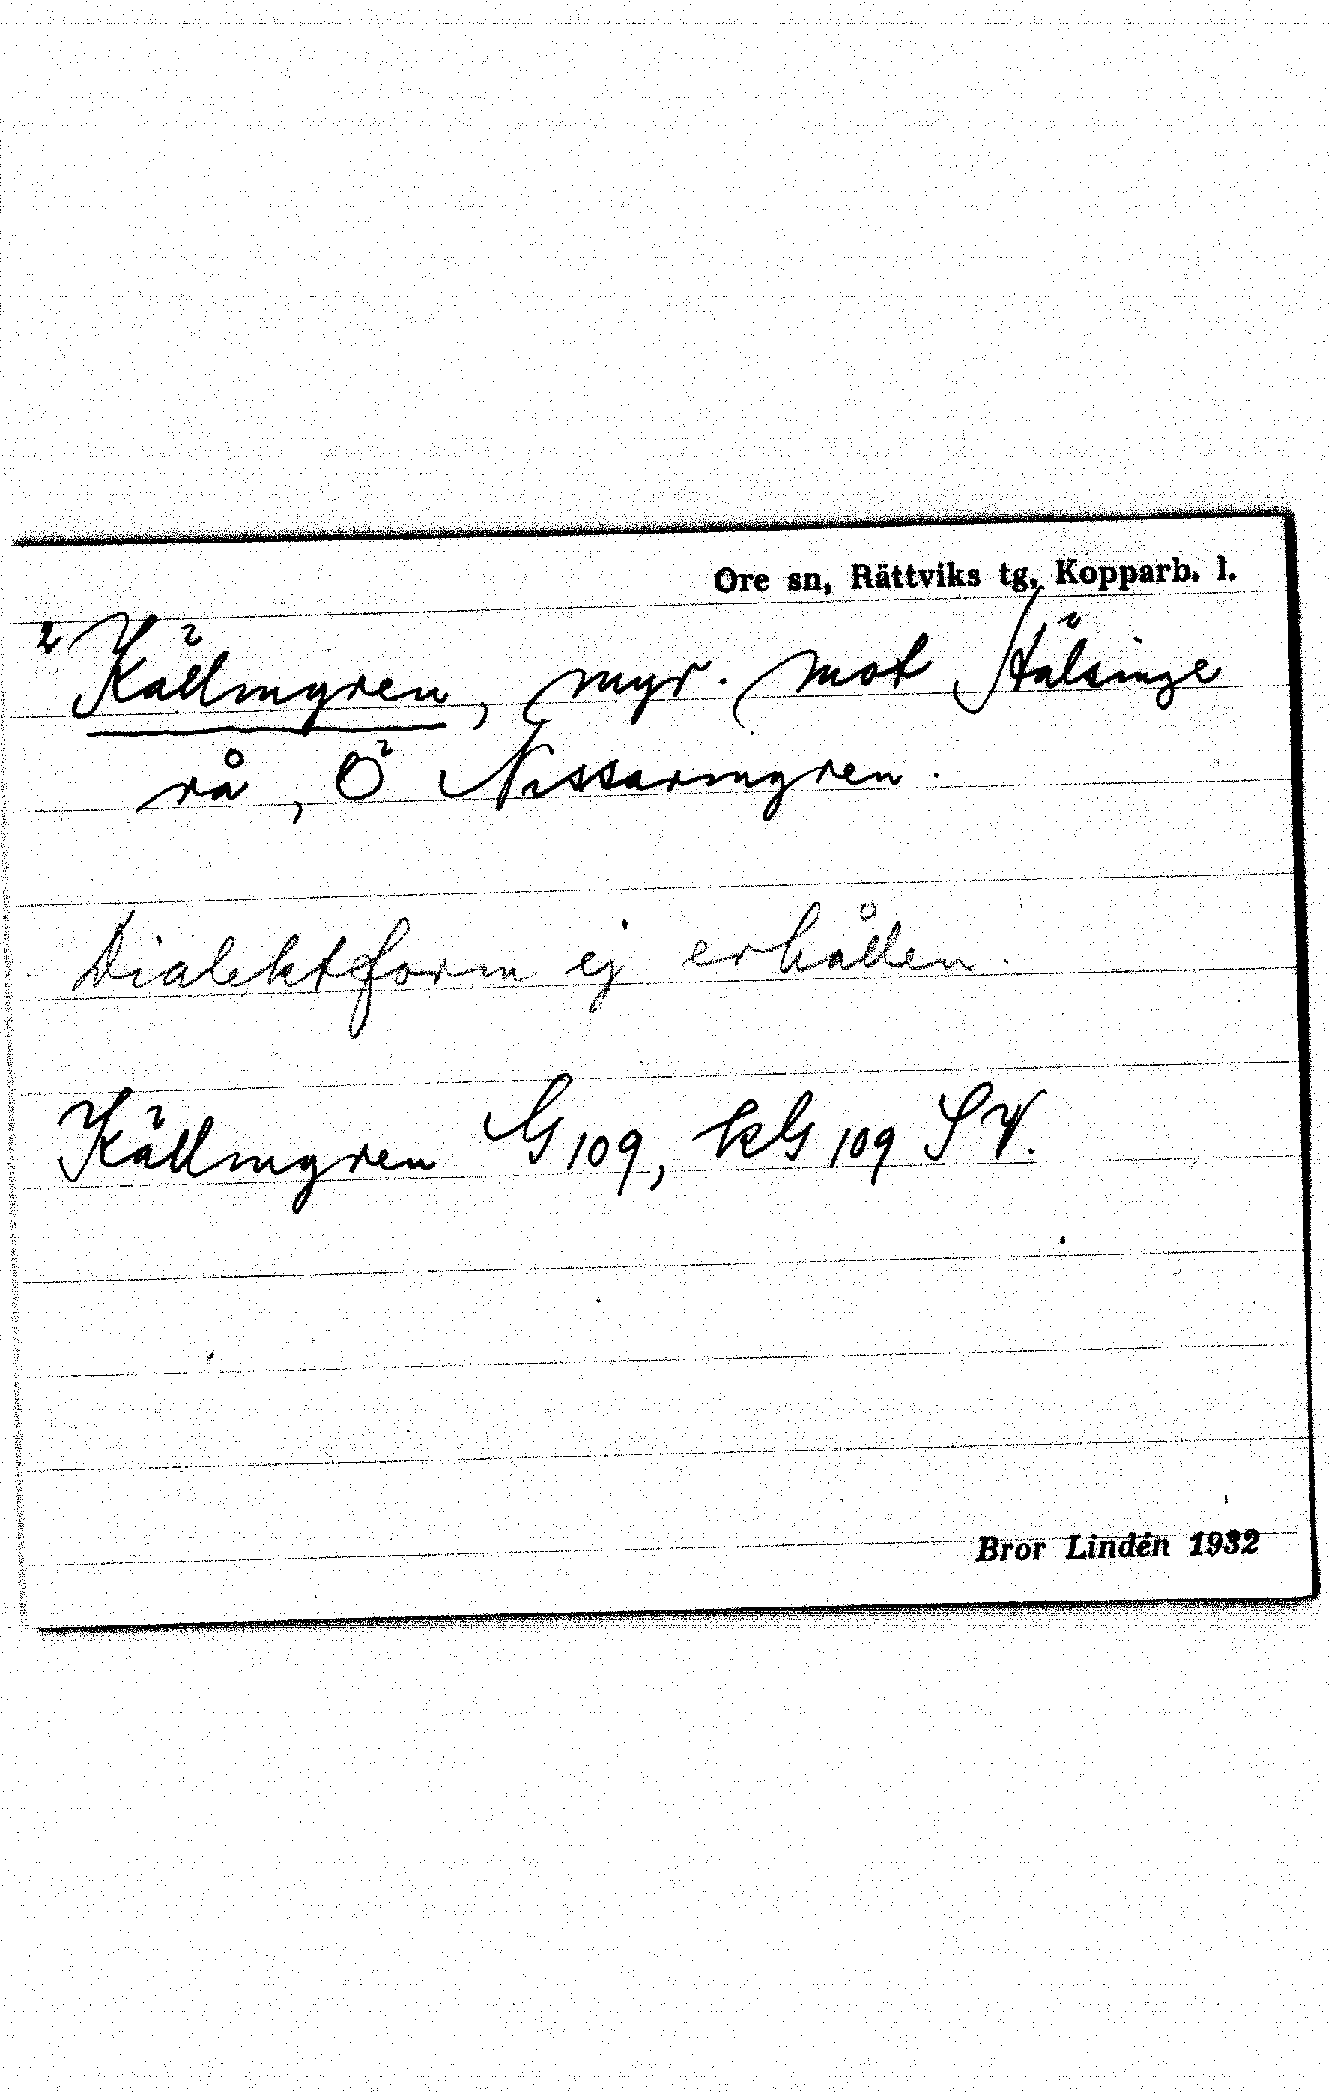 Ore sn, Rättviks tg, Kopparb. l.
2 Källmyren, myr. mot Hälsinge
rå, Ö Nissarmyren.
Dialektform ej erhållen.
Källmyren G 109, kG 109 SV.
Bror Lindén 1932